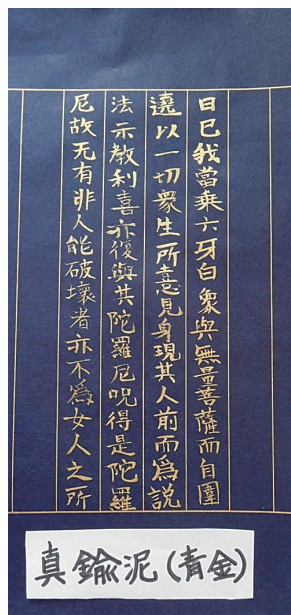 日已我當乗六牙白象與無量菩薩而自圍
遶以一切衆生所憙見身現其人前而為説
法示教利喜亦復與其陀羅尼呪得是陀羅
尼故无有非人能破壞者亦不為女人之所
真鍮泥(青金)